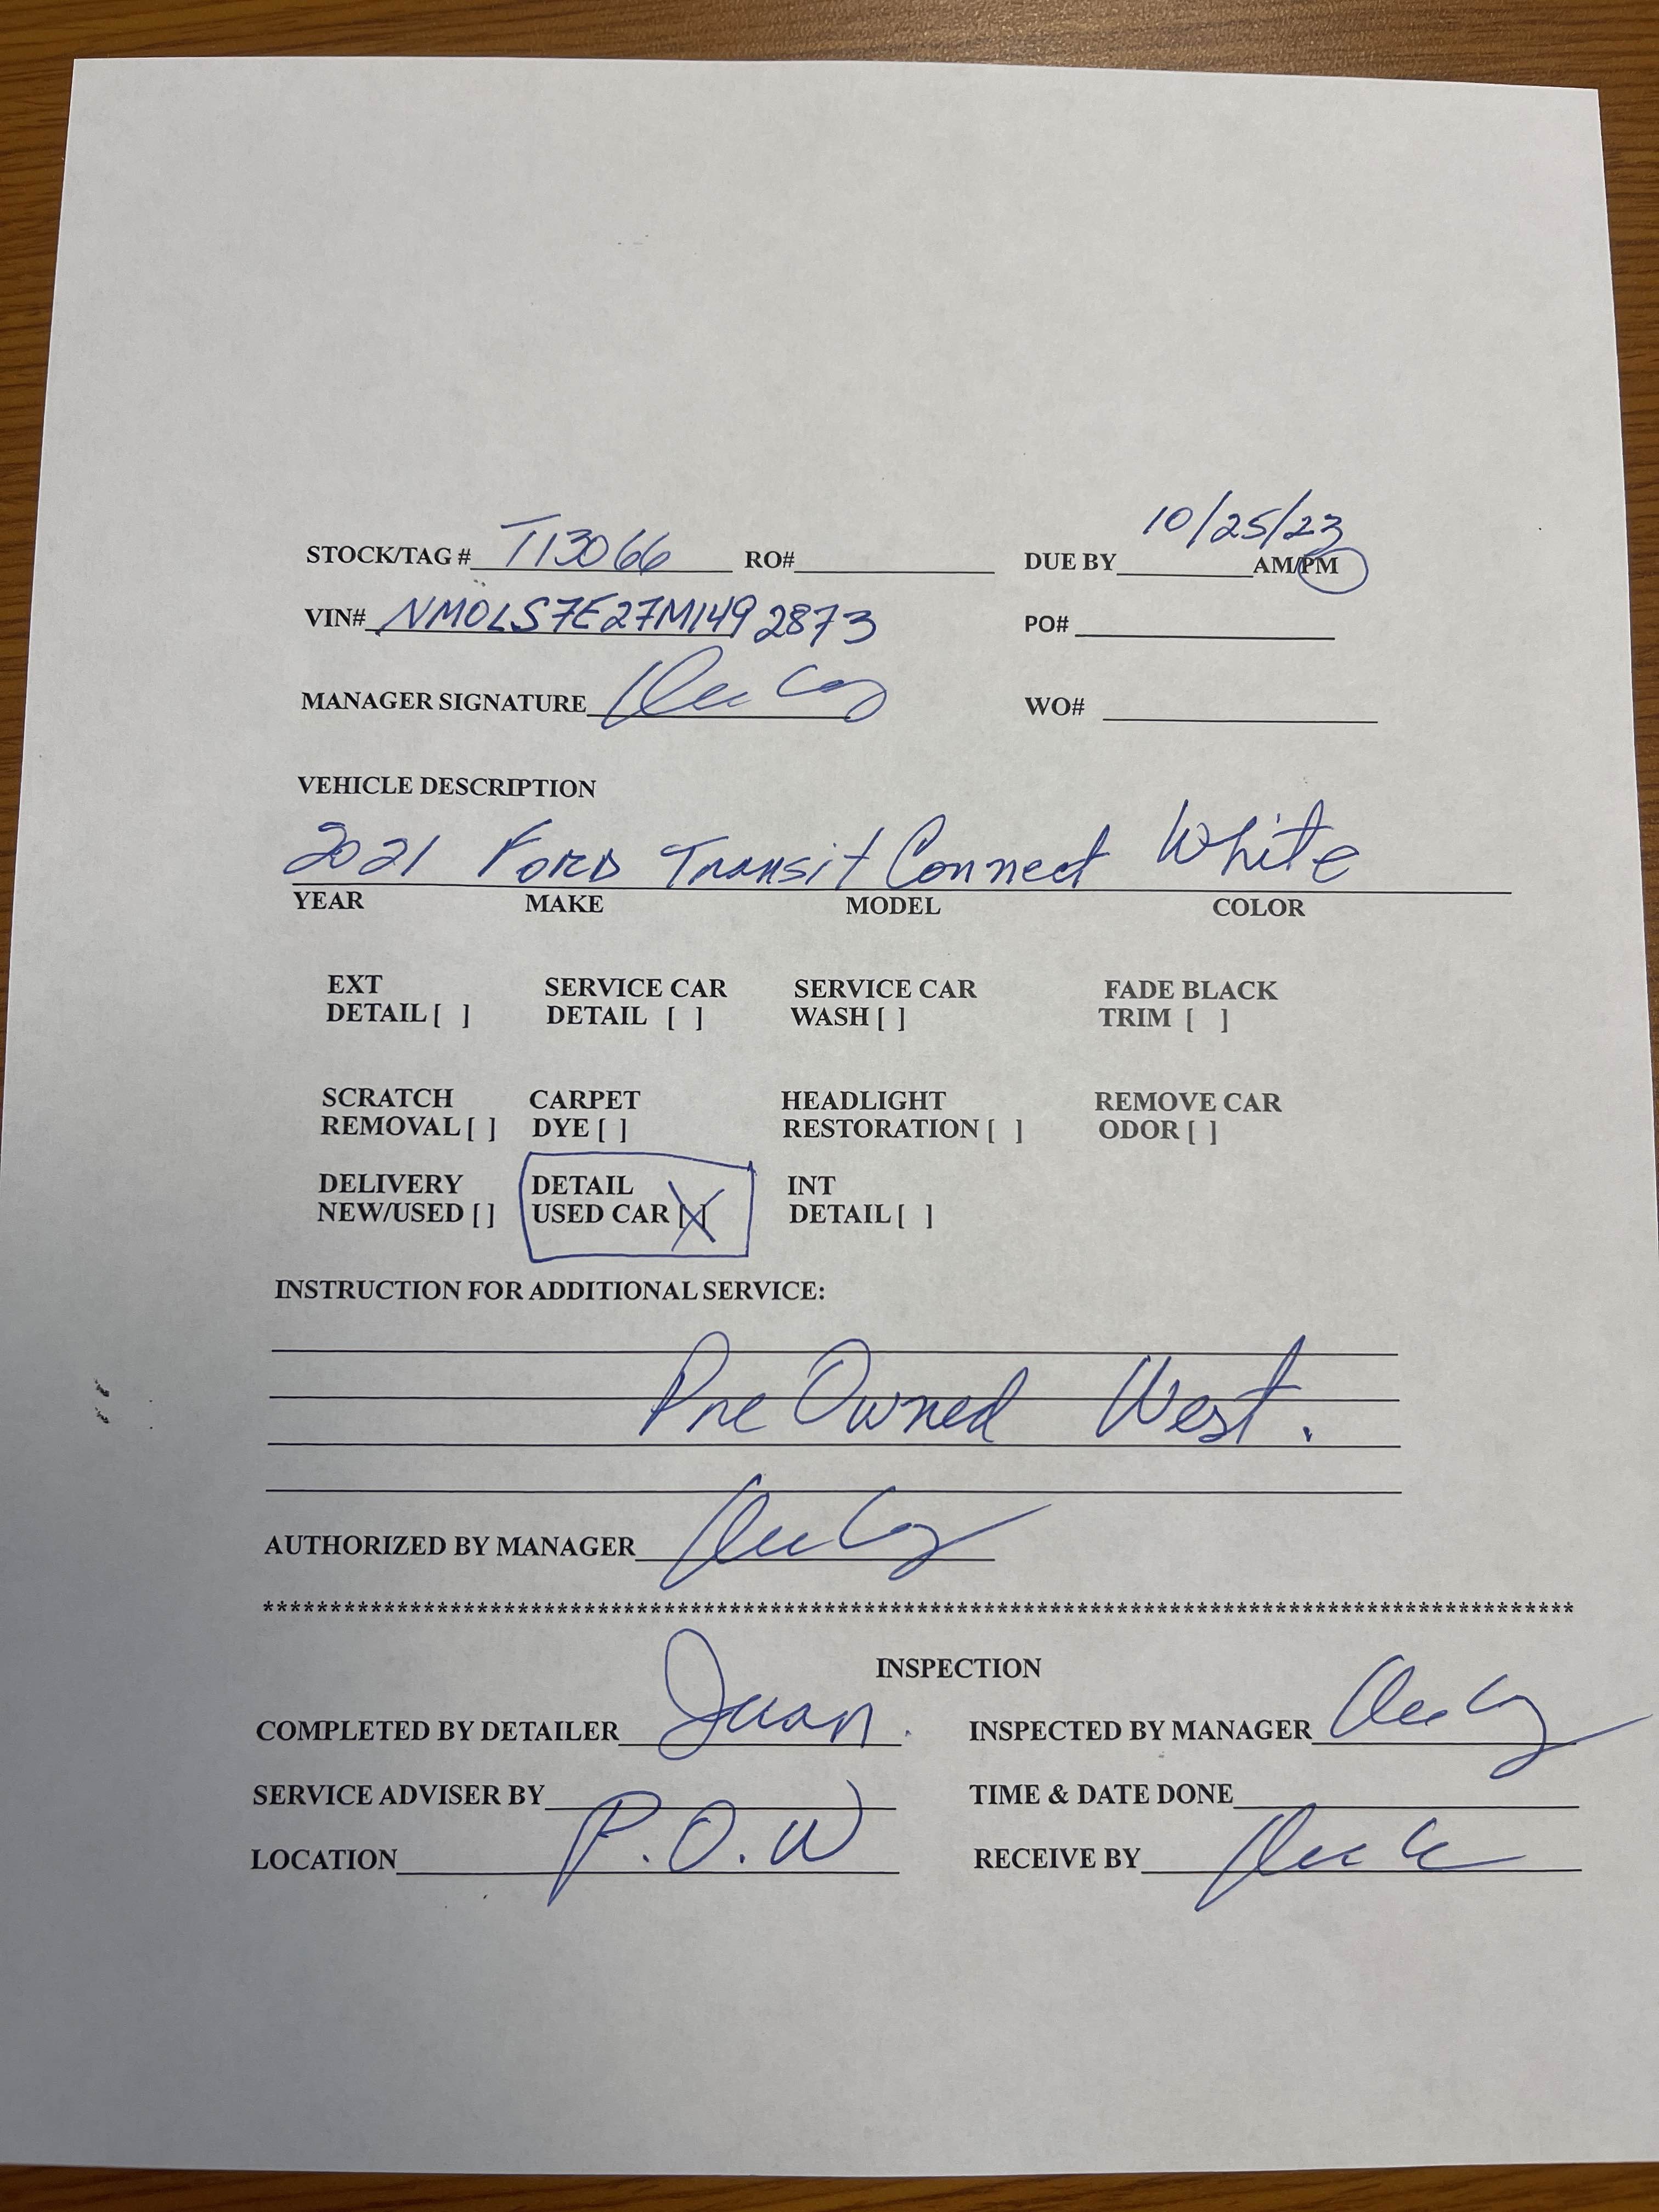 10/25/23
STOCK/TAG # T13066 RO# DUE BY AM/PM
VIN# NM0LS7E27M1492873 PO#
MANAGER SIGNATURE WO#
VEHICLE DESCRIPTION
2021 Ford Transit Connect White
YEAR MAKE MODEL COLOR
EXT SERVICE CAR SERVICE CAR FADE BLACK
DETAIL [ ] DETAIL [ ] WASH [ ] TRIM [ ]
SCRATCH CARPET HEADLIGHT REMOVE CAR
REMOVAL [ ] DYE [ ] RESTORATION [ ] ODOR [ ]
DELIVERY DETAIL INT
NEW/USED [ ] USED CAR [X] DETAIL [ ]
INSTRUCTION FOR ADDITIONAL SERVICE:
Pre Owned West.
AUTHORIZED BY MANAGER
****************************************************************************************************
INSPECTION
COMPLETED BY DETAILER Juan. INSPECTED BY MANAGER
SERVICE ADVISER BY TIME & DATE DONE
LOCATION P.O.W RECEIVE BY